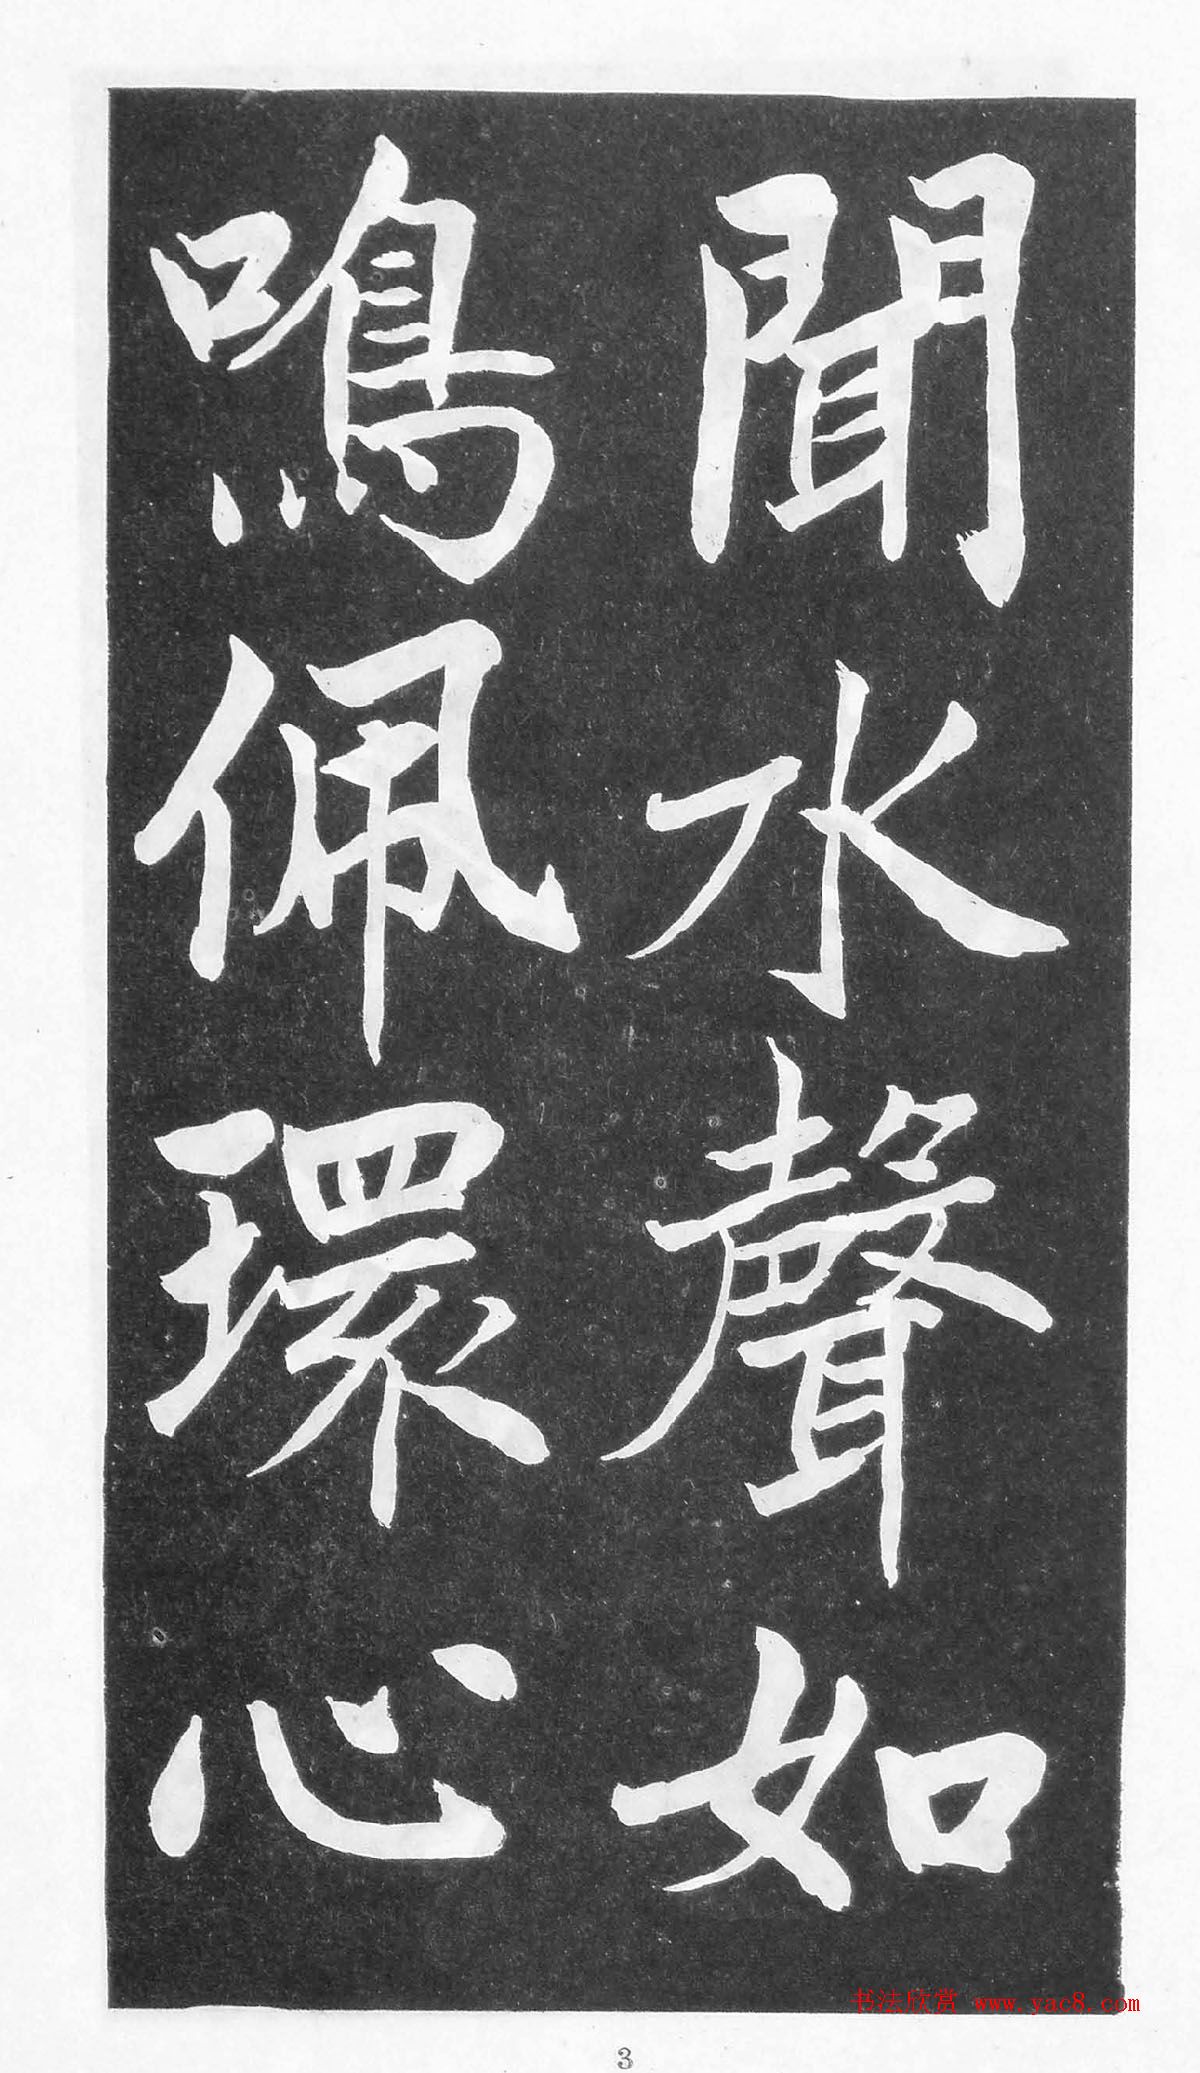 聞水聲如
鳴佩環心
书法欣赏 www.yac8.com
3